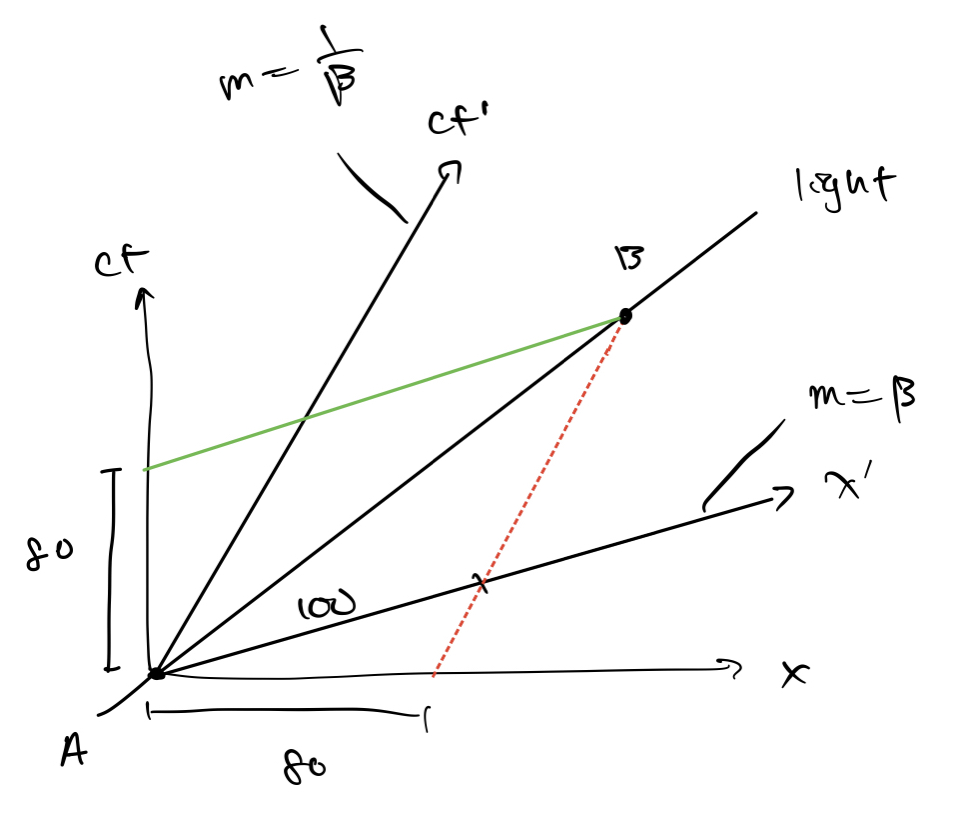 m = 1/β
ct'
light
ct
B
m = β
x'
80
100
x
A
80